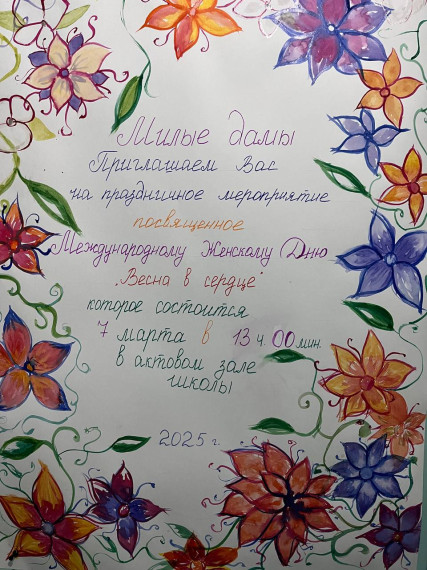 Милые дамы
Приглашаем Вас
на праздничное мероприятие
посвященное
Международному Женскому Дню
"Весна в сердце"
которое состоится
7 марта в 13 ч. 00 мин.
в актовом зале
школы
2025 г.